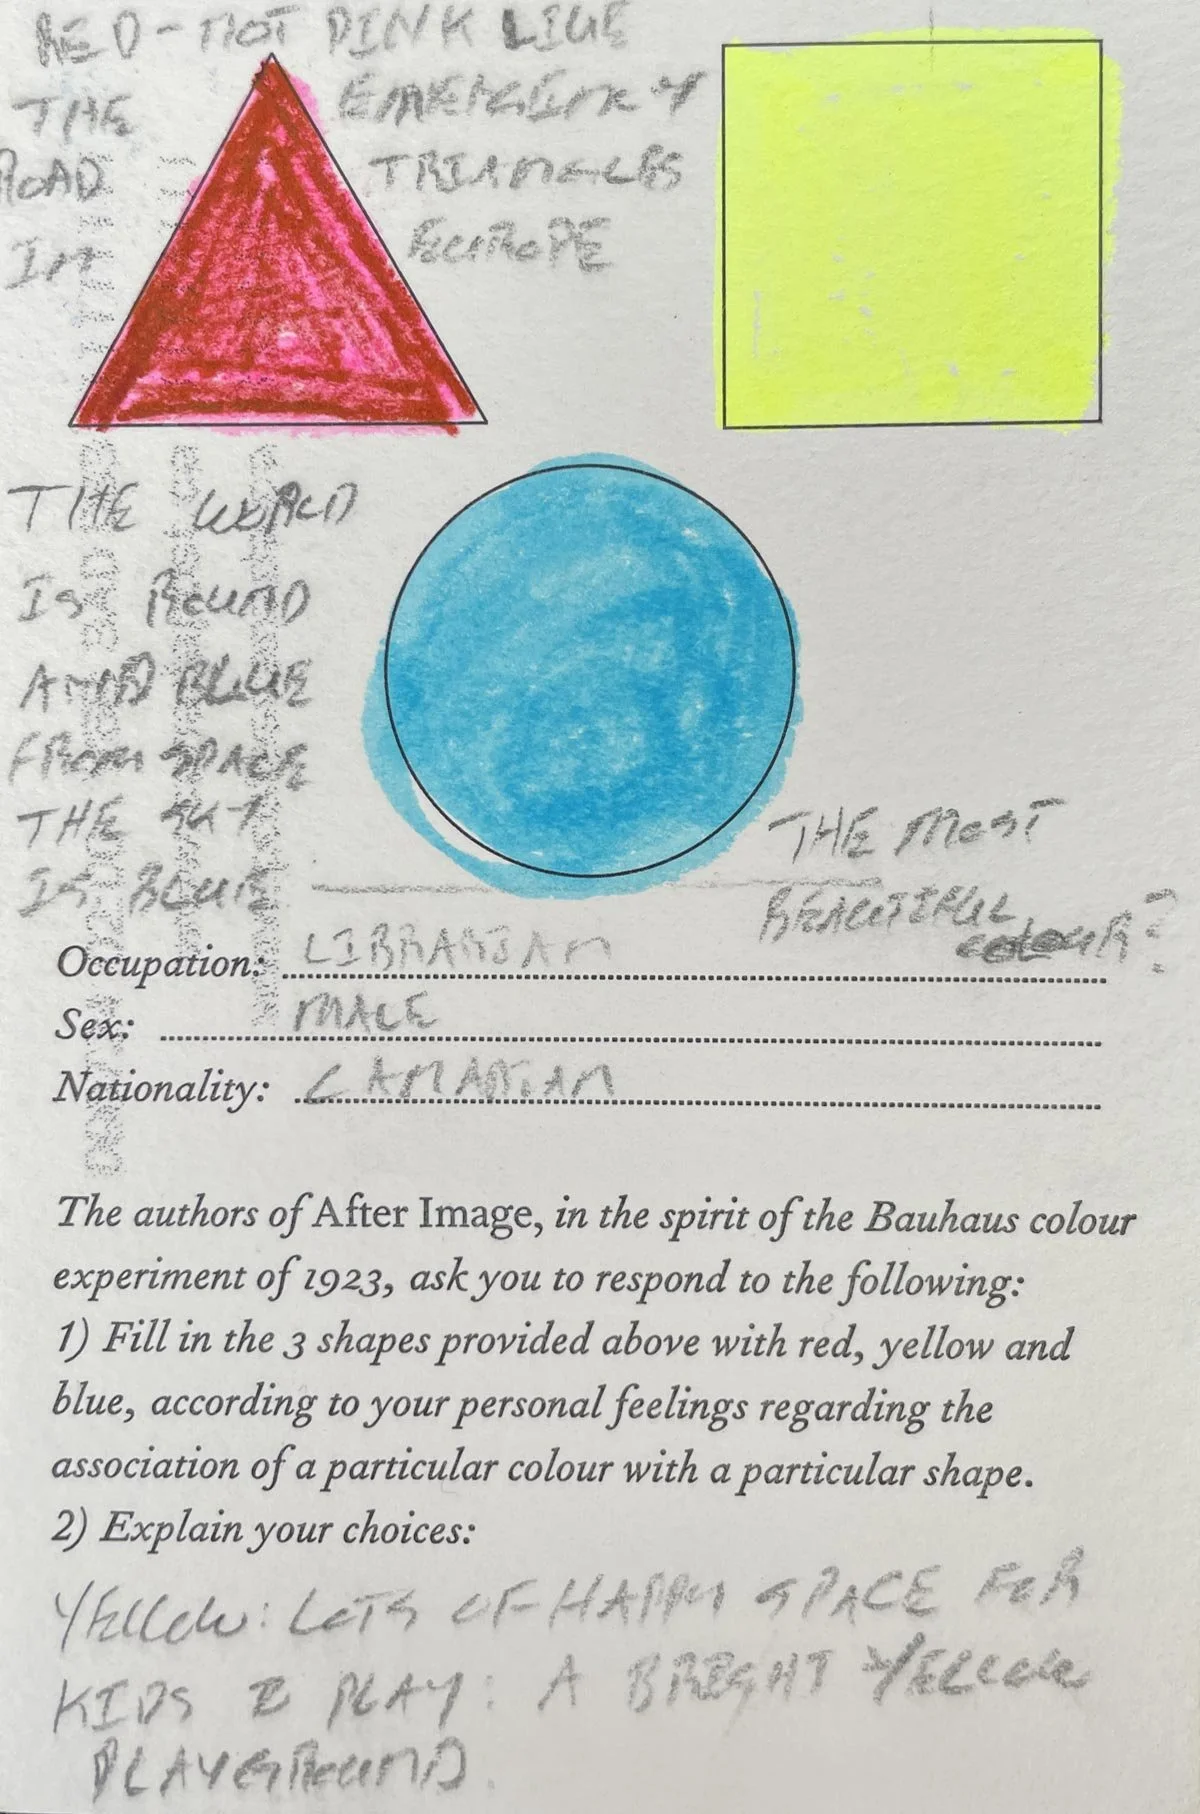 RED-HOT PINK LIKE
THE EMERGENCY
ROAD TRIANGLES
IN EUROPE
THE WORLD
IS ROUND
AND BLUE
FROM SPACE
THE SKY
IS BLUE
THE MOST
BEAUTIFUL
COLOUR?
Occupation: LIBRARIAN
Sex: MALE
Nationality: CANADIAN
The authors of After Image, in the spirit of the Bauhaus colour
experiment of 1923, ask you to respond to the following:
1) Fill in the 3 shapes provided above with red, yellow and
blue, according to your personal feelings regarding the
association of a particular colour with a particular shape.
2) Explain your choices:
YELLOW: LOTS OF HAPPY SPACE FOR
KIDS 2 PLAY: A BRIGHT YELLOW
PLAYGROUND.